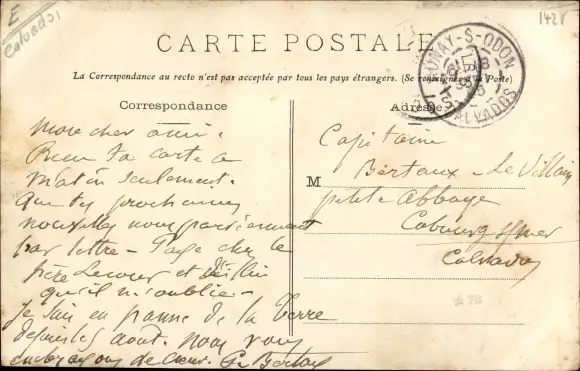 E
Calvados
1428
CARTE POSTALE
La Correspondance au recto n'est pas acceptée par tous les pays étrangers. (Se renseigner à la Poste)
Correspondance
Adresse
AUNAY-S-ODON
CALVADOS
Mon cher ami.
Reçu ta carte ce
matin seulement.
Que tes prochaines
nouvelles nous parviennent
par lettre - chez le
père Lecour et
qu'il n'oublie -
Je suis en panne de la Terre
depuis août. nous vous
embrassons de cœur.
Capitaine
M Bertaux - Le Villain
petite Abbaye
Cabourg s/mer
Calvados